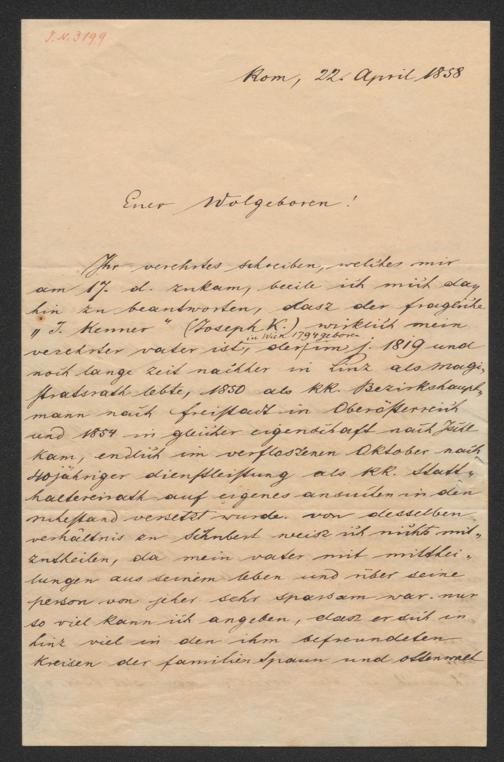 I. N. 3199
Rom, 22. April 1858
Euer Wolgeboren!
Ihr verehrtes schreiben, welches mir
am 17. d. zukam, beeile ich mich da„
hin zu beantworten, dasz der fragliche
„J. Kenner" (Joseph K.) wirklich mein
verehrter vater ist, der, in Wien 1794 geboren im j. 1819 und
noch lange zeit nachher in Linz als magi„
stratsrath lebte, 1850 als kk. Bezirkshaupt„
mann nach Freistadt in Oberösterreich
und 1854 in gleicher eigenschaft nach Ischl
kam, endlich im verfloszenen Oktober nach
40jähriger dienstleistung als kk. Statt„
haltereirath auf eigenes ansuchen in den
ruhestand versetzt wurde. von desselben
verhältnis zu Schubert weisz ich nichts mit„
zutheilen, da mein vater mit mitthei„
lungen aus seinem leben und über seine
person von jeher sehr sparsam war. nur
so viel kann ich angeben, dasz er sich in
Linz viel in den ihm befreundeten
kreisen der familien Spaun und Ottenwalt